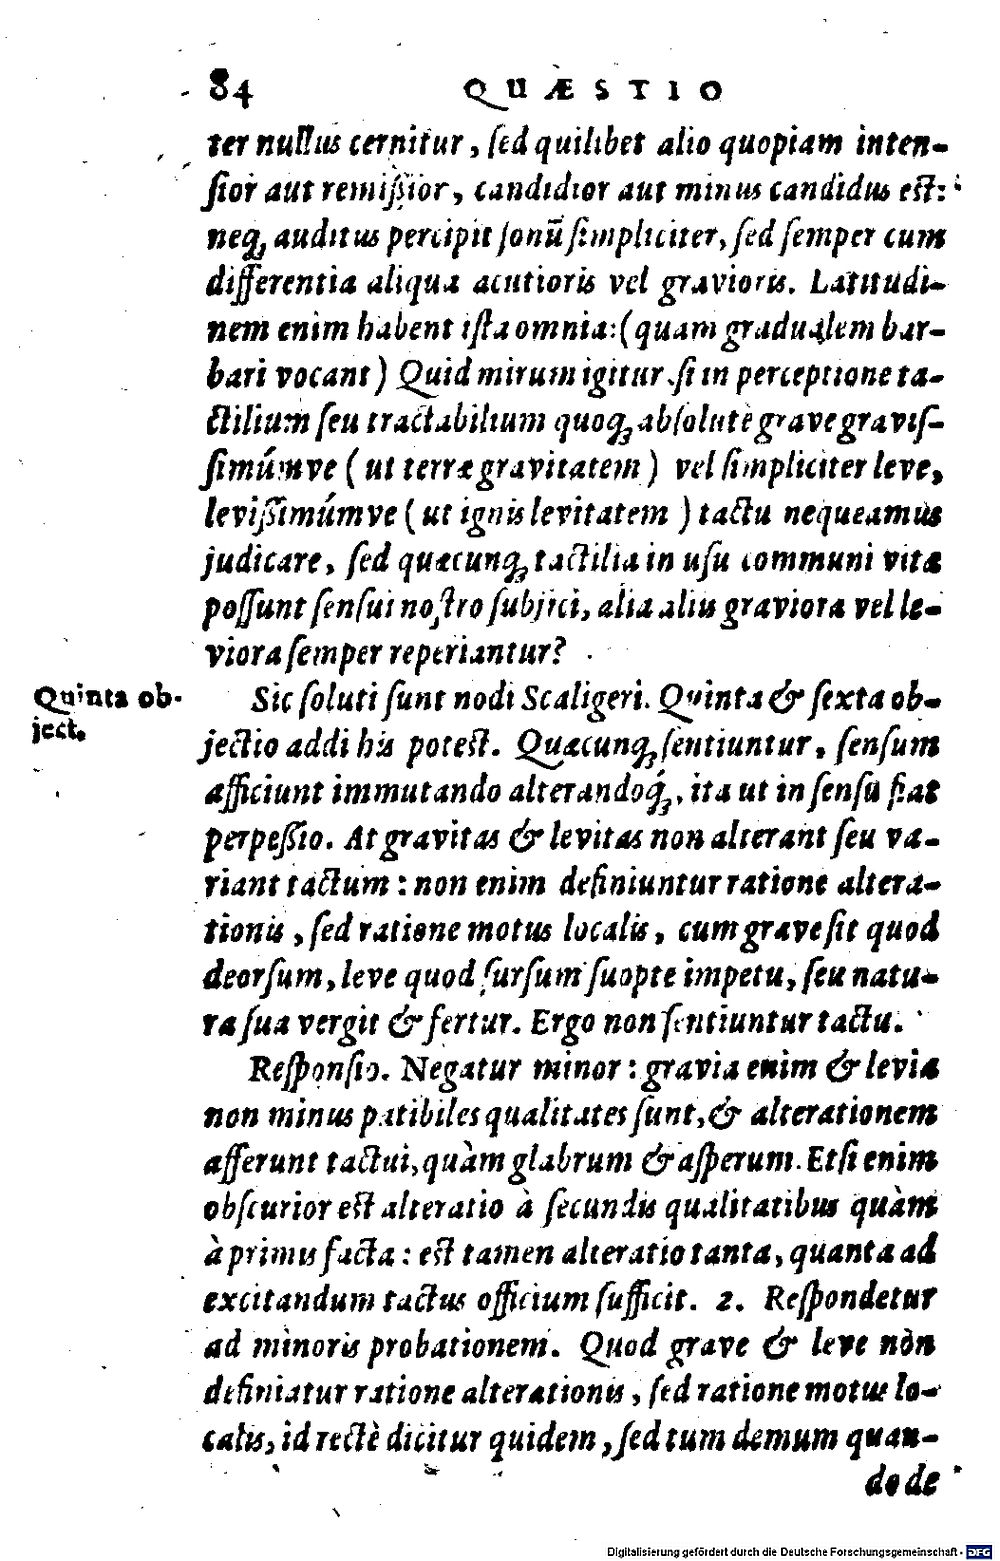 84 QUÆSTIO
ter nullus cernitur, ſed quilibet alio quopiam inten-
ſior aut remiſſior, candidior aut minus candidus eſt:
neq; auditus percipit ſonū ſimpliciter, ſed ſemper cum
differentia aliqua acutioris vel gravioris. Latitudi-
nem enim habent iſta omnia: (quam gradualem bar-
bari vocant) Quid mirum igitur ſi in perceptione ta-
ctilium ſeu tractabilium quoq; abſolutè grave graviſ-
ſimúmve (ut terræ gravitatem) vel ſimpliciter leve,
leviſſimúmve (ut ignis levitatem) tactu nequeamus
judicare, ſed quæcunq; tactilia in uſu communi vitæ
poſſunt ſenſui noſtro ſubjici, alia aliis graviora vel le-
viora ſemper reperiantur?
Quinta ob-
ject.
Sic ſoluti ſunt nodi Scaligeri. Quinta & ſexta ob-
jectio addi his poteſt. Quæcunq; ſentiuntur, ſenſum
afficiunt immutando alterandoq́;, ita ut in ſenſu fiat
perpeſſio. At gravitas & levitas non alterant ſeu va-
riant tactum: non enim definiuntur ratione altera-
tionis, ſed ratione motus localis, cum grave ſit quod
deorſum, leve quod ſurſum ſuopte impetu, ſeu natu-
ra ſua vergit & fertur. Ergo non ſentiuntur tactu.
Reſponſio. Negatur minor: gravia enim & levia
non minus patibiles qualitates ſunt, & alterationem
afferunt tactui, quàm glabrum & aſperum. Etſi enim
obſcurior eſt alteratio à ſecundis qualitatibus quàm
à primis facta: eſt tamen alteratio tanta, quanta ad
excitandum tactus officium ſufficit. 2. Reſpondetur
ad minoris probationem. Quod grave & leve non
definiatur ratione alterationis, ſed ratione motus lo-
calis, id rectè dicitur quidem, ſed tum demum quan-
do de
Digitalisierung gefördert durch die Deutsche Forschungsgemeinschaft - DFG